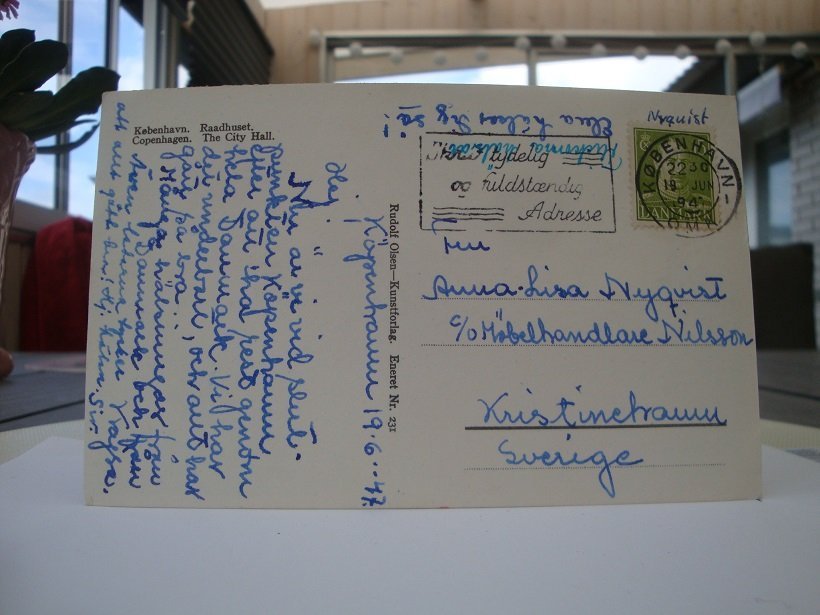 København. Raadhuset.
Copenhagen. The City Hall.
Hej!
Köpenhamn 19.6.-47.
Nu är vi vid slut-
punkten Köpenhamn
efter att ha rest genom
hela Danmark. Vi har
det underbart, och allt har
gått så bra.
Många hälsningar från
Danmark och från
Vajsa.
att allt gått bra! Hej
Rudolf Olsen—Kunstforlag. Eneret Nr. 231
Nyquist
KØBENHAVN
22 30
19 JUN
94
OMK
DANMARK
Skriv tydelig
og fuldstændig
Adresse
Fru
Anna-Lisa Nyqvist
c/o Möbelhandlare Nilsson
Kristinehamn
Sverige